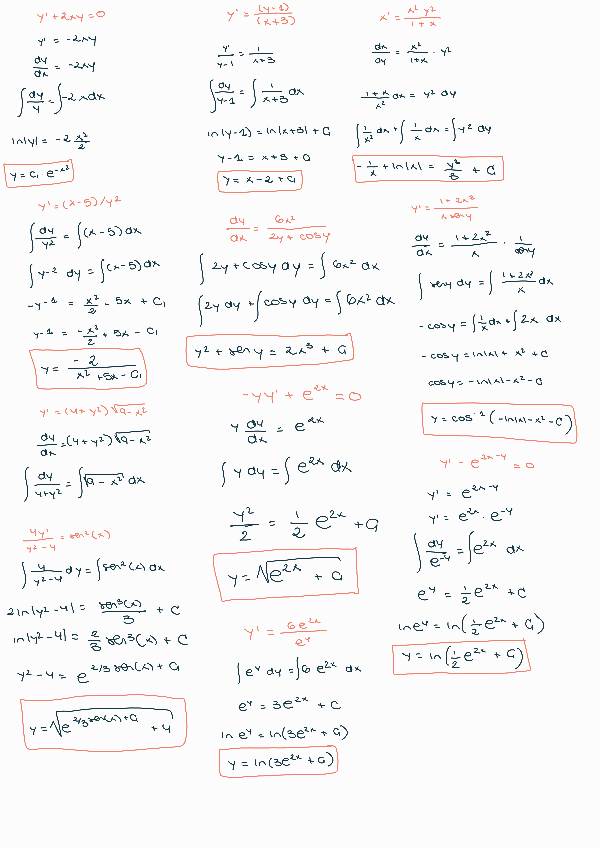 y' + 2xy = 0
y' = -2xy
dy/dx = -2xy
∫ dy/y = ∫ -2x dx
ln|y| = -2 x²/2
y = C₁ · e^-x²
y' = (y-1)/(x+3)
y'/y-1 = 1/x+3
∫ dy/y-1 = ∫ 1/x+3 dx
ln(y-1) = ln|x+3| + C₁
y-1 = x+3+C
y = x-2+C₁
x' = x² y²/1+x
dx/dy = x²/1+x · y²
1+x/x² dx = y² dy
∫ 1/x² dx + ∫ 1/x dx = ∫ y² dy
-1/x + ln|x| = y³/3 + C
y' = (x-5)/y²
∫ dy/y² = ∫ (x-5) dx
∫ y^-2 dy = ∫ (x-5) dx
-y^-1 = x²/2 - 5x + C₁
y^-1 = -x²/2 + 5x - C₁
y = -2/x² + 5x - C₁
dy/dx = 6x²/2y + cosy
∫ 2y + cosy dy = ∫ 6x² dx
∫ 2y dy + ∫ cosy dy = ∫ 6x² dx
y² + seny = 2x³ + C₁
y' = 1+2x²/x seny
dy/dx = 1+2x²/x · 1/seny
∫ seny dy = ∫ 1+2x²/x dx
-cosy = ∫ 1/x dx + ∫ 2x dx
-cosy = ln|x| + x² + C
cosy = -ln|x| - x² - C
y = cos^-1 (-ln|x| - x² - C)
y' = (4+y²) √9-x²
dy/dx = (4+y²) √9-x²
∫ dy/4+y² = ∫ √9-x² dx
-yy' + e^2x = 0
y dy/dx = e^2x
∫ y dy = ∫ e^2x dx
y²/2 = 1/2 e^2x + C₁
y = √e^2x + C
y' - e^2x-y = 0
y' = e^2x-y
y' = e^2x · e^-y
∫ dy/e^-y = ∫ e^2x dx
e^y = 1/2 e^2x + C
ln e^y = ln(1/2 e^2x + C₁)
y = ln(1/2 e^2x + C₁)
4y'/y²-4 = sen²(x)
∫ 4/y²-4 dy = ∫ sen²(x) dx
2ln|y²-4| = sen³(x)/3 + C
ln|y²-4| = 2/3 sen³(x) + C
y²-4 = e^2/3 sen(x) + C₁
y = √e^2/3 sen(x) + C₁ + 4
y' = 6e^2x/e^y
∫ e^y dy = ∫ 6 e^2x dx
e^y = 3e^2x + C
ln e^y = ln(3e^2x + C₁)
y = ln(3e^2x + C₁)